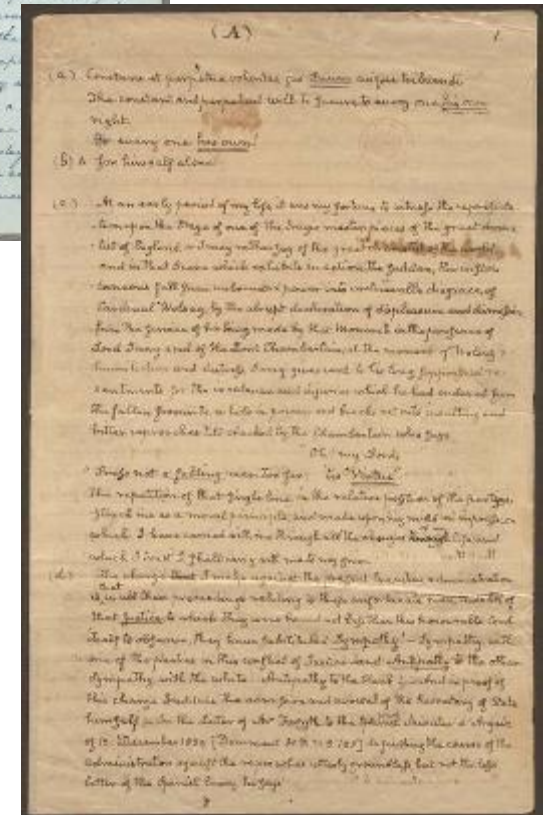 (A) 1
(a) Constans et perpetua voluntas jus suum cuique tribuendi
The constant and perpetual will to secure to every one his own
right.
To every one his own!
(b) A for himself alone
(c) At an early period of my life it was my fortune to witness the representa-
tion upon the Stage of one of the tragic masterpieces of the great drama-
tist of England, or I may rather say of the great dramatist of the world
and in that Scene which exhibits in action the sudden, the instan-
taneous fall from unbounded power into irretrievable disgrace, of
Cardinal Wolsey, by the abrupt declaration of displeasure and dismission
from the service of his King made by that Monarch in the presence of
Lord Surry and of the Lord Chamberlain, at the moment of Wolsey's
humiliation and distress, Surry gives vent to his long suppressed re-
sentments for the insolence and injuries which he had endured from
the fallen favourite, while in power and breaks out into insulting and
bitter reproaches till checked by the Chamberlain who says
Oh! my Lord,
Press not a falling man too far: 'tis Virtue
The repetition of that single line in the relative position of the parties
struck me as a moral principle, and made upon my mind an impression
which I have carried with me through all the changes of life and
which I trust I shall carry with me to my grave
(d) The charge that I make against the present Executive administration
is that in all their proceedings relating to these unfortunate men, instead of
that Justice, to which they were bound not less than this honorable Court
itself to observe, they have substituted Sympathy! – Sympathy with
one of the parties in this conflict of Justice and Antipathy to the other
Sympathy with the white Antipathy to the black and in proof of
this charge I adduce the admission and avowal of the Secretary of State
himself in the letter of Mr Forsyth to the Spanish Minister d'Argaiz
of 12 December 1839 [Document H R N S 185] defending the course of the
administration against the
letter of the Spanish Envoy, he says